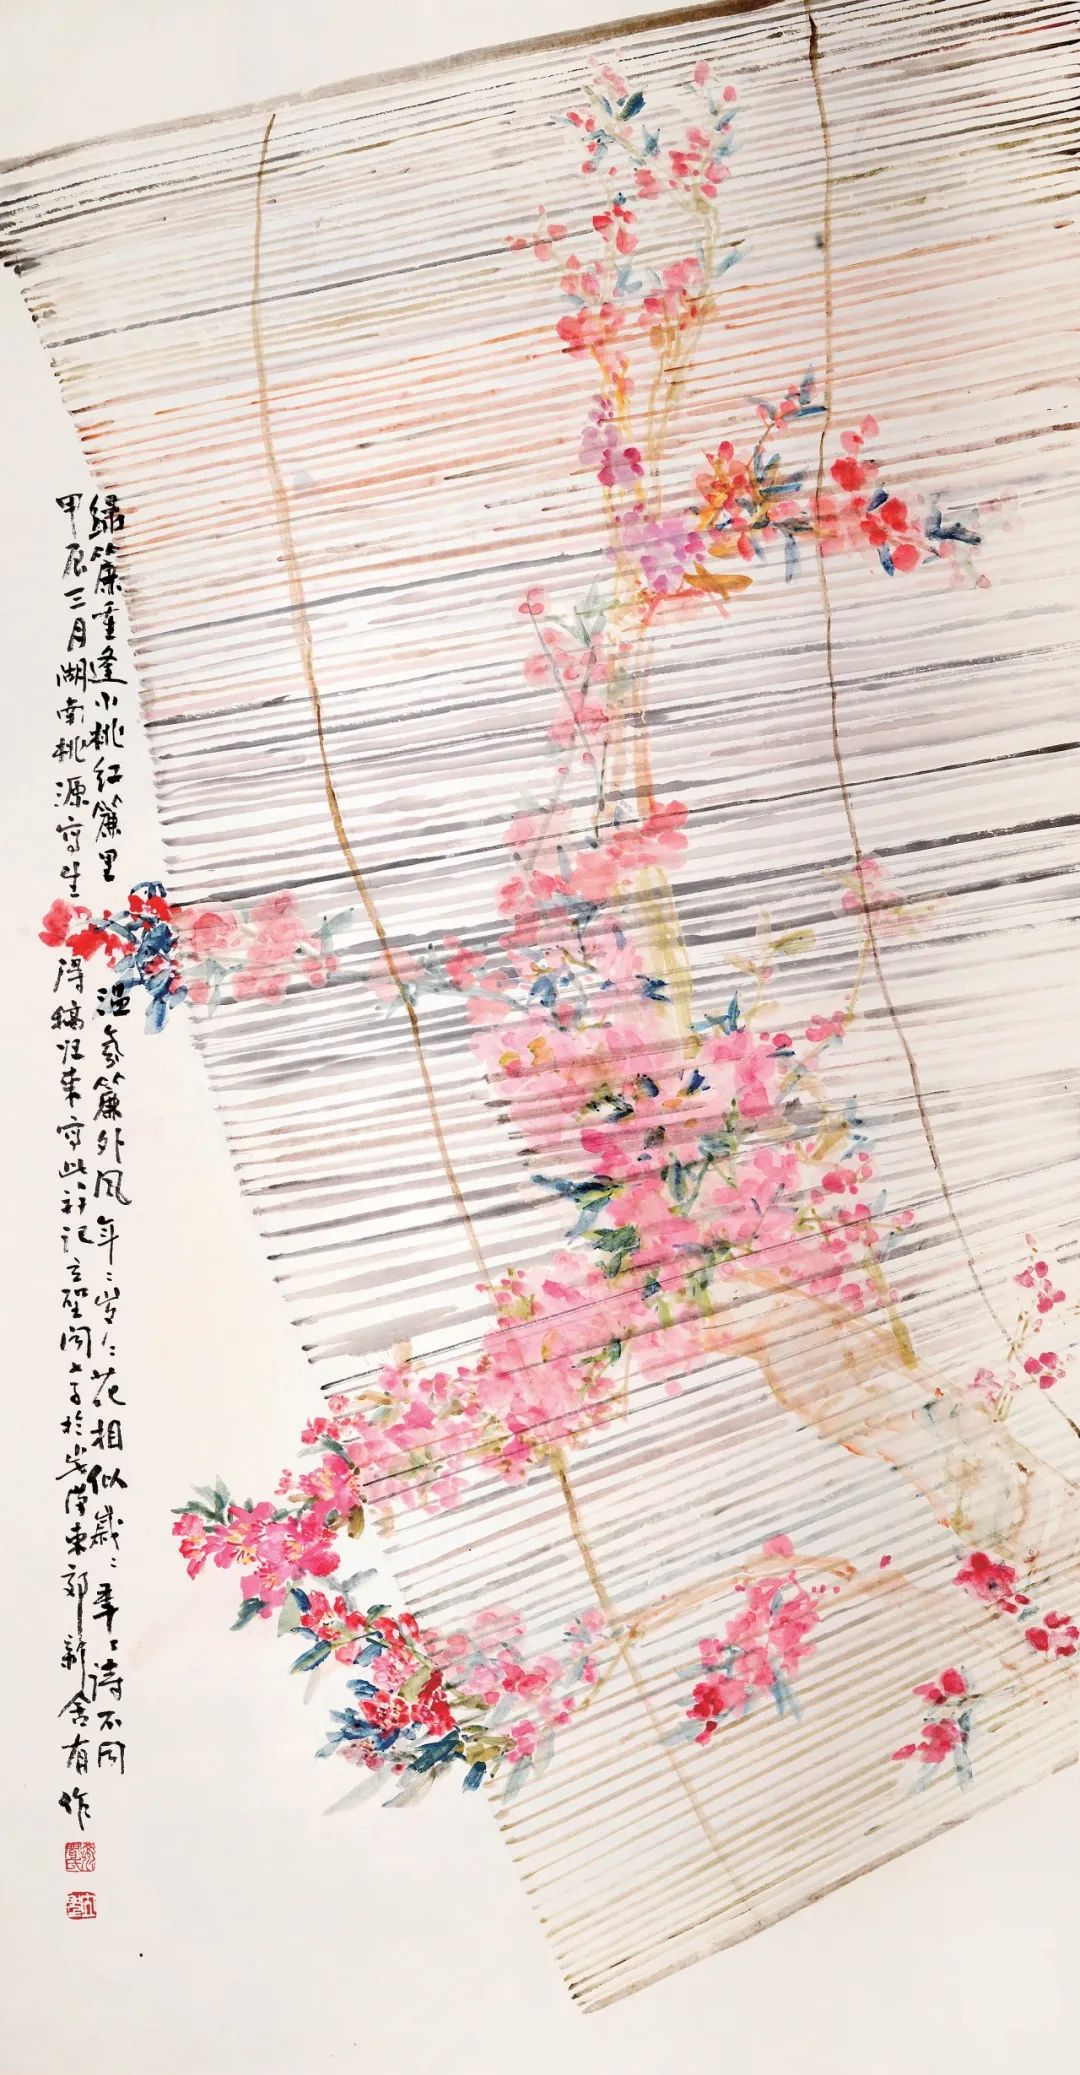 绿帘重逢小桃红帘里温存帘外风年年岁岁花相似岁岁年年诗不同
甲辰三月湖南桃源写生得稿归来写此并记立聖闵学於岁落东郊新舍有作